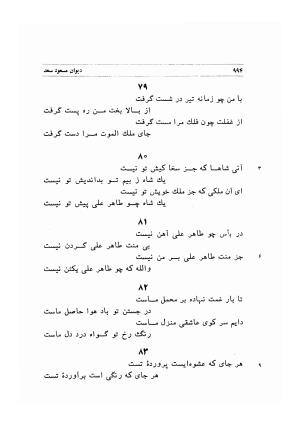 ۹۹۴ دیوان مسعود سعد
۷۹
با من چو زمانه تیر در شست گرفت
از بالا بخت من ره پست گرفت
از غفلت چون فلک مرا مست گرفت
جای ملك الموت مرا دست گرفت
۸۰
آنی شاها که جز سخا کیش تو نیست
یك شاه ز بیم تو بداندیش تو نیست
ای آن ملکی که جز ملك خویش تو نیست
یك شاه چو طاهر علی پیش تو نیست
۸۱
در بأس چو طاهر علی آهن نیست
بی منت طاهر علی گردن نیست
جز منت طاهر علی بر من نیست
والله که چو طاهر علی یکتن نیست
۸۲
تا بار غمت نهاده بر محمل ماست
در جستن تو باد هوا حاصل ماست
دایم سر کوی عاشقی منزل ماست
رنگ رخ تو گواه درد دل ماست
۸۳
هر جای که عشوه‌ایست پروردهٔ تست
هر جای که رنگی است برآوردهٔ تست
۳
۶
۹